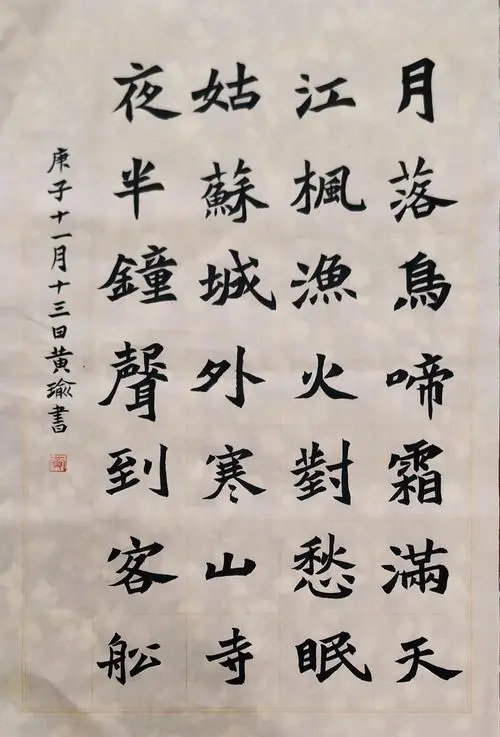 月落鳥啼霜滿天
江楓漁火對愁眠
姑蘇城外寒山寺
夜半鐘聲到客舩
庚子十一月十三日黄瑜書